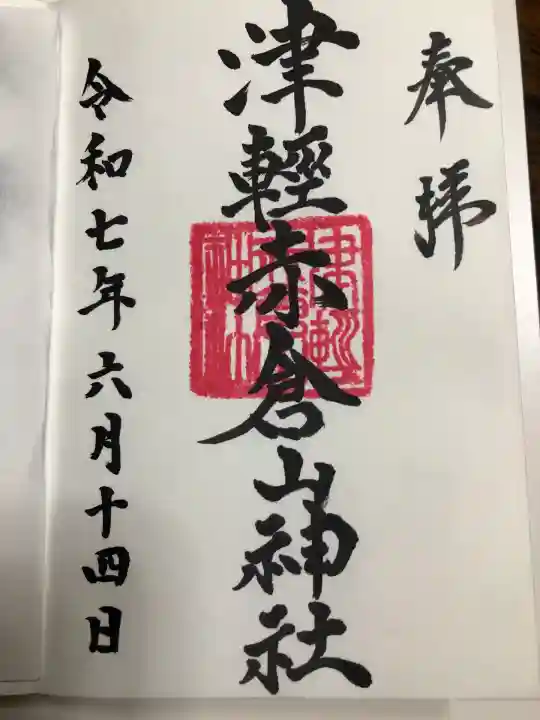 奉拝
津輕赤倉山神社
令和七年六月十四日